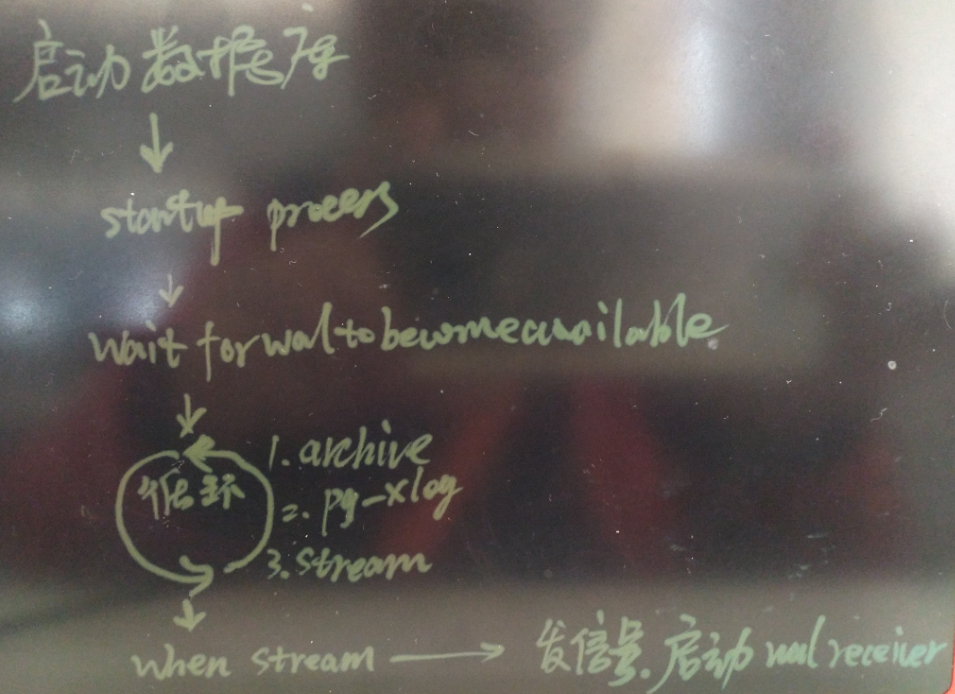 启动数据库
startup process
wait for wal to become available
循环
1. archive
2. pg-xlog
3. stream
when stream
发信量. 启动 wal receiver